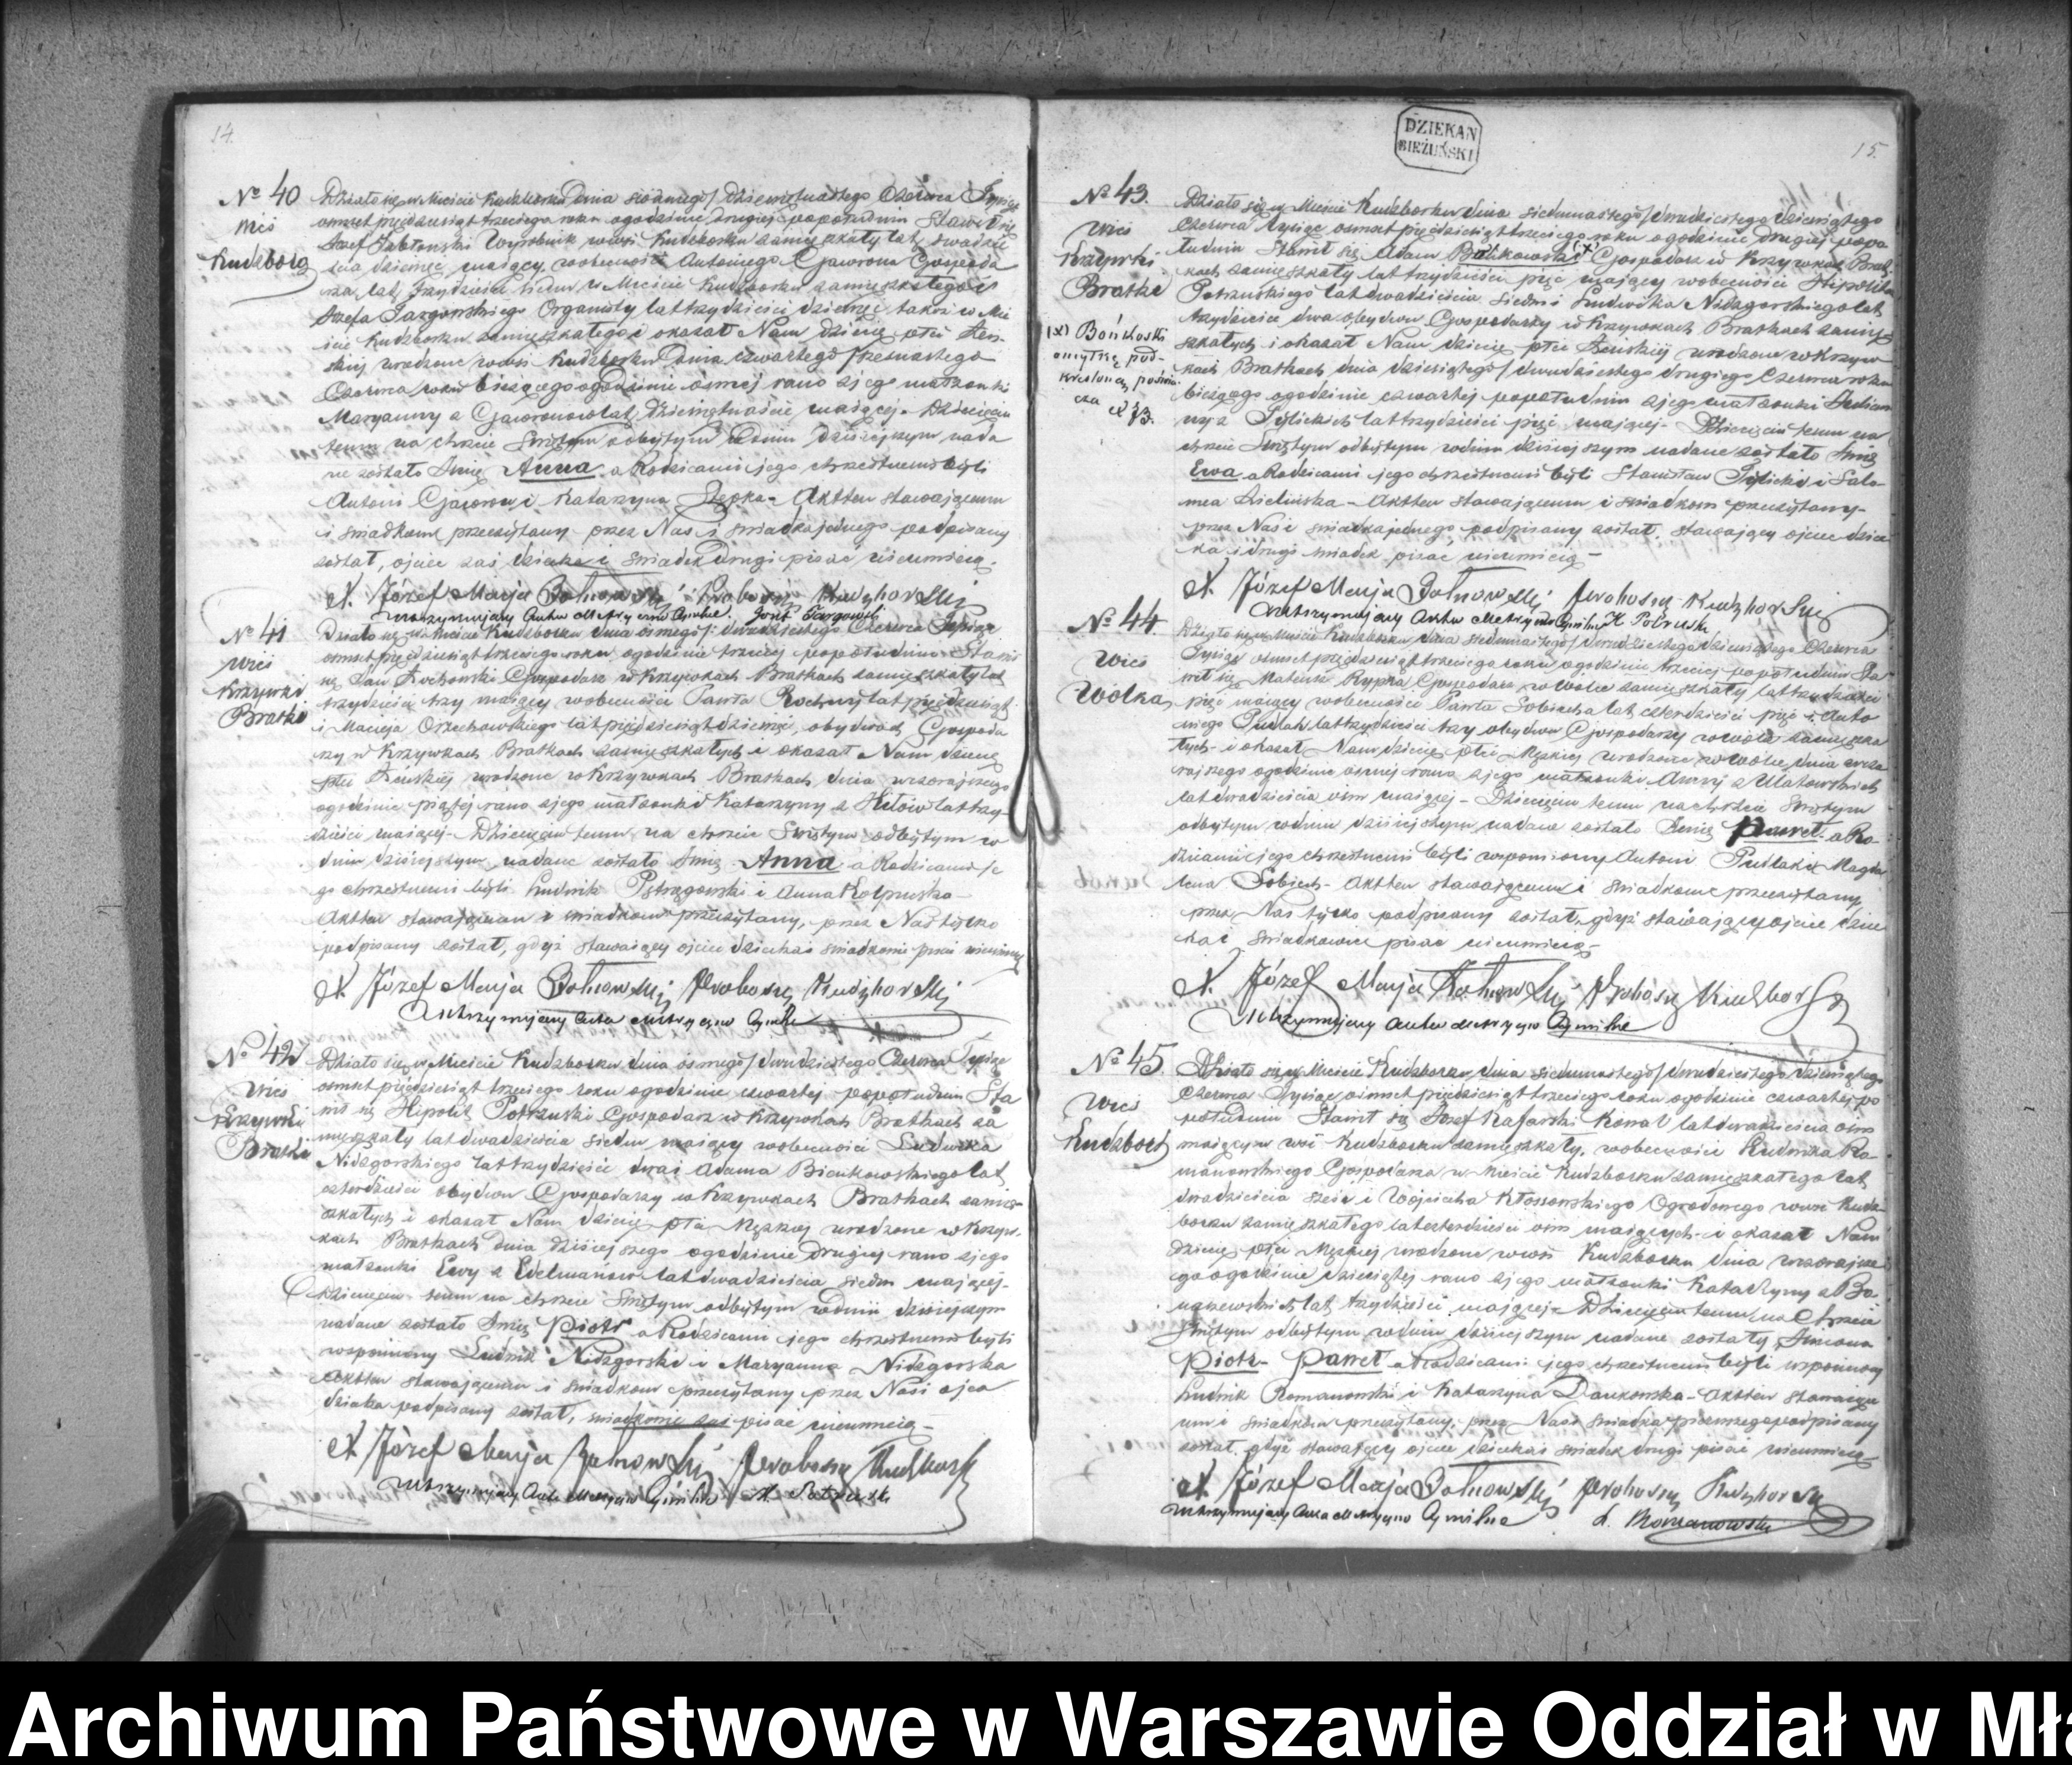 14.
№ 40
Wieś
Kuczborg
Działo się w Mieście Kuczborku Dnia siódmego/ Dziewiętnastego Czerwca Tysiąc
ośmset pięćdziesiąt trzeciego roku o godzinie drugiej popołudniu Stawił się
Józef Jabłoński Wyrobnik we wsi Kuczborku zamieszkały lat dwadzie
ścia dziewięć mający, w obecności Antoniego Gawrona Gospoda
rza lat trzydzieści siedm w Mieście Kuczborku zamieszkałego i
Józefa Targowskiego Organisty lat trzydzieści dziewięć także w Mie
ście Kuczborku zamieszkałego i okazał Nam dziecię płci żeń-
skiej urodzone we wsi Kuczborku Dnia czwartego/ szesnastego
Czerwca roku bieżącego o godzinie ósmej rano z jego małżonki
Maryanny z Gawronów lat dziewiętnaście mającej. Dziecięciu
temu na chrzcie Świętym odbytym w Dniu dzisiejszym nada
ne zostało Imię Anna a Rodzicami jego chrzestnemi byli
Antoni Gawron i Katarzyna Rzepka - Akt ten stawającemu
i świadkom przeczytany przez Nas i świadka jednego podpisany
został, ojciec zaś dziecka i świadek drugi pisać nieumieją.
X. Józef Marja Proboszcz Kuczborski
utrzymujący Akta Metryczno Cywilne. Józef Targowski
№ 41
Wieś
Krzywki
Bratki
Działo się w Mieście Kuczborku dnia ósmego/ dwudziestego Czerwca Tysiąc
ośmset pięćdziesiąt trzeciego roku o godzinie trzeciej popołudniu Stawił
się Jan Gospodarz w Krzywkach Bratkach zamieszkały lat
trzydzieści trzy mający w obecności Pawła lat pięćdziesiąt
i Macieja Orzechowskiego lat pięćdziesiąt dziewięć, obydwóch Gospoda
rzy w Krzywkach Bratkach zamieszkałych i okazał Nam dziecię
płci Żeńskiej urodzone w Krzywkach Bratkach dnia wczorajszego
o godzinie piątej rano z jego małżonki Katarzyny z lat trzy-
dzieści mającej - Dziecięciu temu na chrzcie Świętym odbytym w
dniu dzisiejszym nadane zostało Imię Anna a Rodzicami je
go chrzestnemi byli Ludwik i Anna
Akt ten stawającemu i świadkom przeczytany, przez Nas tylko
podpisany został, gdyż stawający ojciec dziecka i świadkowie pisać nieumieją
X. Józef Marja Proboszcz Kuczborski
Utrzymujący Akta Metryczno Cywilne
№ 42
Wieś
Krzywki
Bratki
Działo się w Mieście Kuczborku dnia ósmego/ dwudziestego Czerwca Tysiąc
ośmset pięćdziesiąt trzeciego roku o godzinie czwartej popołudniu Sta
wił się Hipolit Potrzuski Gospodarz w Krzywkach Bratkach za
mieszkały lat dwadzieścia siedm mający w obecności Ludwika
Nidzgorskiego lat trzydzieści dwa i Adama Bieńkowskiego lat
czterdzieści obydwu Gospodarzy w Krzywkach Bratkach zamie-
szkałych i okazał Nam dziecię płci Męskiej urodzone w Krzyw-
kach Bratkach dnia dzisiejszego o godzinie drugiej rano z jego
małżonki Ewy z Edelmanów lat dwadzieścia siedm mającej-
Dziecięciu temu na chrzcie Świętym odbytym w dniu dzisiejszym
nadane zostało Imię Piotr a Rodzicami jego chrzestnemi byli
wspomniony Ludwik Nidzgorski i Maryanna Nidzgorska
Akt ten stawającemu i świadkom przeczytany przez Nas i ojca
dziecka podpisany został, świadkowie zaś pisać nieumieją -
X Józef Marja Proboszcz Kuczborski
Utrzymujący Akta Metryczno Cywilne H. Potrzuski
DZIEKAN
BIEŻUŃSKI
15.
№ 43.
Wieś
Krzywki
Bratki
(x) Bońkoski
omyłkę pod-
kreśloną poświa
cza
Działo się w Mieście Kuczborku dnia siedmnastego/ dwudziestego dziewiątego
Czerwca tysiąc ośmset pięćdziesiąt trzeciego roku o godzinie drugiej popo
łudniu Stawił się Adam (x) Gospodarz w Krzywkach Brat-
kach zamieszkały lat trzydzieści pięć mający w obecności Hipolita
Potrzuskiego lat dwadzieścia siedm i Ludwika Nidzgorskiego lat
trzydzieści dwa obydwu Gospodarzy w Krzywkach Bratkach zamie-
szkałych i okazał Nam dziecię płci Żeńskiej urodzone w Krzyw-
kach Bratkach dnia dziesiątego/ dwudziestego drugiego Czerwca roku
bieżącego o godzinie czwartej popołudniu z jego małżonki
z Tylickich lat trzydzieści pięć mającej - Dziecięciu temu na
chrzcie Świętym odbytym w dniu dzisiejszym nadane zostało Imię
Ewa a Rodzicami jego chrzestnemi byli Stanisław Tylicki i Salo-
mea Zielińska - Akt ten stawającemu i świadkom przeczytany-
przez Nas i świadka jednego podpisany został, stawający ojciec dziec
ka i drugi świadek pisać nieumieją -
X. Józef Marja Proboszcz Kuczborski
Utrzymujący Akta Metryczno Cywilne H Potrzuski
№ 44.
Wieś
Wólka
Działo się w Mieście Kuczborku dnia siedmnastego/ dwudziestego dziewiątego Czerwca
Tysiąc ośmset pięćdziesiąt trzeciego roku o godzinie trzeciej popołudniu Sta
wił się Mateusz Rypka Gospodarz w Wólce zamieszkały lat trzydzieści
pięć mający w obecności Pawła Sobiecha lat czterdzieści pięć i Anto
niego lat trzydzieści trzy obydwu Gospodarzy w Wólce zamieszka
łych - i okazał Nam dziecię płci Męskiej urodzone w Wólce dnia wczo
rajszego o godzinie ósmej rano z jego małżonki Anny z Ulatowskich
lat dwadzieścia ośm mającej - Dziecięciu temu na chrzcie Świętym
odbytym w dniu dzisiejszym nadane zostało Imię Paweł a Ro-
dzicami jego chrzestnemi byli wspomniony Antoni i Magda
lena Sobiech - Akt ten stawającemu i świadkom przeczytany
przez Nas tylko podpisany został, gdyż stawający ojciec dziec
ka i świadkowie pisać nieumieją -
X. Józef Marja Proboszcz Kuczborski
Utrzymujący Akta Metryczno Cywilne
№ 45.
Wieś
Kuczborg
Działo się w Mieście Kuczborku dnia siedmnastego/ dwudziestego dziewiątego
Czerwca Tysiąc ośmset pięćdziesiąt trzeciego roku o godzinie czwartej po
południu Stawił się Józef Kafarski Kowal lat dwadzieścia ośm
mający w wsi Kuczborku zamieszkały, w obecności Ludwika Ro-
manowskiego Gospodarza w Mieście Kuczborku zamieszkałego lat
dwadzieścia sześć i Wojciecha Kłossowskiego Ogrodowego w wsi Kucz-
borku zamieszkałego lat czterdzieści ośm mających - i okazał Nam
dziecię płci Męskiej urodzone w wsi Kuczborku dnia wczorajsze
go o godzinie dziesiątej rano z jego małżonki Katarzyny z Ba
naszewskich lat trzydzieści mającej - Dziecięciu temu na Chrzcie
Świętym odbytym w dniu dzisiejszym nadane zostały Imiona
Piotr - Paweł a Rodzicami jego chrzestnemi byli wspomniony
Ludwik Romanowski i Katarzyna Dankowska - Akt ten stawający
emu i świadkom przeczytany, przez Nas i świadka pierwszego podpisany
został, gdyż stawający ojciec dziecka i świadek drugi pisać nieumieją
X Józef Marja Proboszcz Kuczborski
Utrzymujący Akta Metryczno Cywilne L. Romanowski
Archiwum Państwowe w Warszawie Oddział w Mła